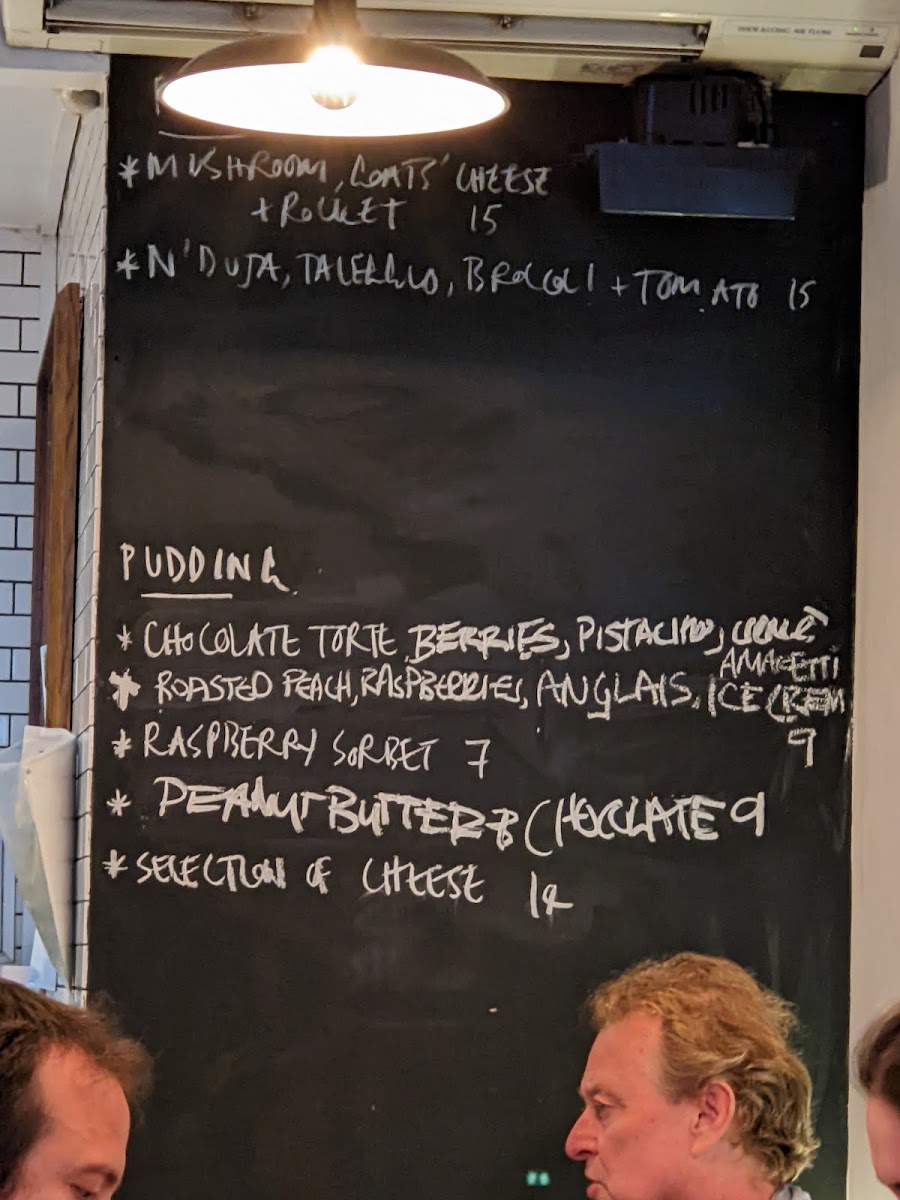 *MUSHROOM, GOATS' CHEESE
+ ROCKET 15
*N'DUJA, TALEGGIO, BROCOLI + TOMATO 15
PUDDING
* CHOCOLATE TORTE, BERRIES, PISTACHIO,
AMARETTI
* ROASTED PEACH, RASPBERRIES, ANGLAIS, ICE CREM
9
* RASPBERRY SORBET 7
* PEANUT BUTTER & CHOCOLATE 9
* SELECTION OF CHEESE 14